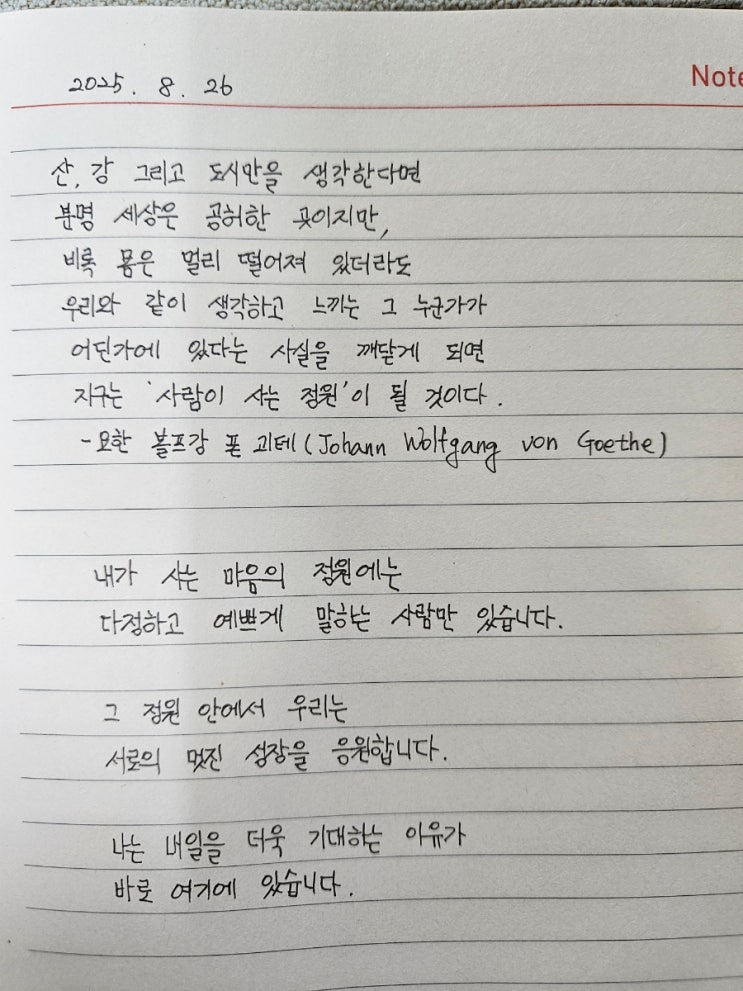 2025. 8. 26
Note
산, 강 그리고 도시만을 생각한다면
분명 세상은 공허한 곳이지만,
비록 몸은 멀리 떨어져 있더라도
우리와 같이 생각하고 느끼는 그 누군가가
어딘가에 있다는 사실을 깨닫게 되면
지구는 '사람이 사는 정원'이 될 것이다.
- 요한 볼프강 폰 괴테 (Johann Wolfgang von Goethe)
내가 사는 마음의 정원에는
다정하고 예쁘게 말하는 사람만 있습니다.
그 정원 안에서 우리는
서로의 멋진 성장을 응원합니다.
나는 내일을 더욱 기대하는 이유가
바로 여기에 있습니다.